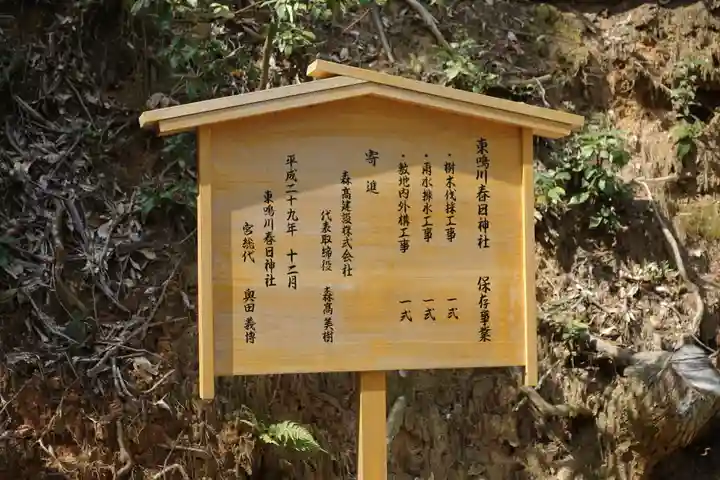 東鳴川春日神社 保存事業
・樹木伐採工事 一式
・雨水排水工事 一式
・敷地内外構工事 一式
寄進
森髙建設株式会社
代表取締役 森髙美樹
平成二十九年 十二月
東鳴川春日神社
宮総代 奥田義博